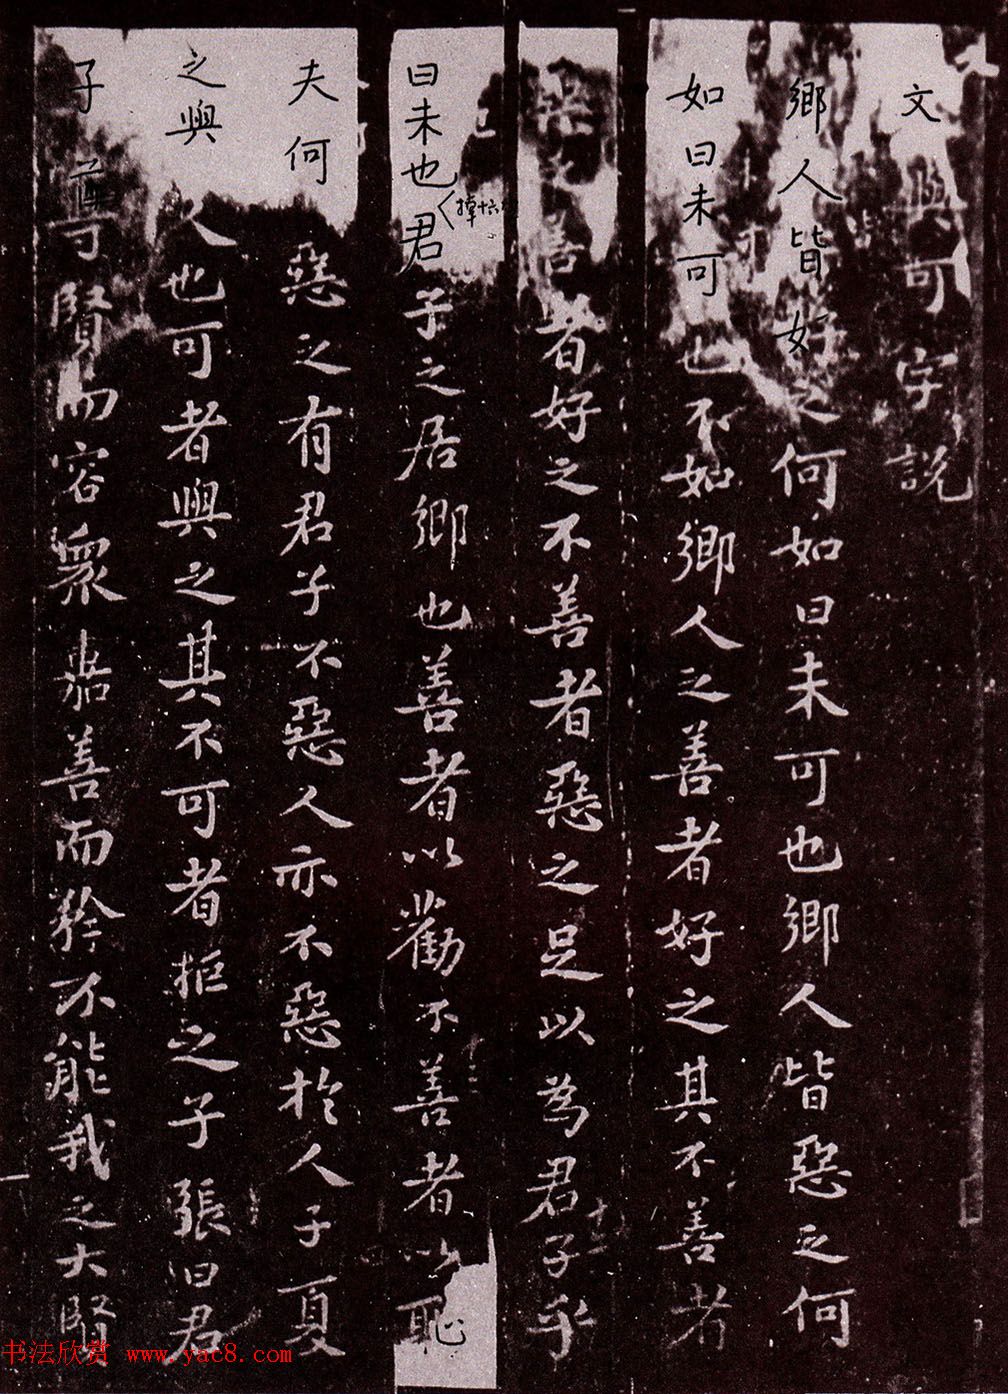 文與可字説
鄉人皆好之何如曰未可也鄉人皆惡之何
如曰未可也不如鄉人之善者好之其不善者
善者好之不善者惡之足以為君子乎
曰未也君子之居鄉也善者以勸不善者以恥
夫何惡之有君子不惡人亦不惡於人子夏
之與人也可者與之其不可者拒之子張曰君
子尊賢而容衆嘉善而矜不能我之大賢
书法欣赏 www.yac8.com